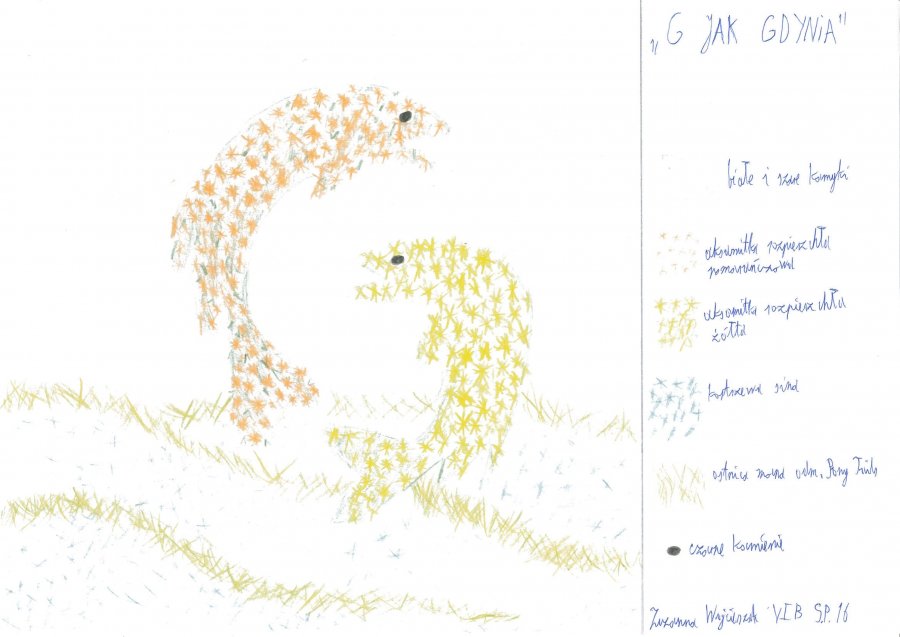 „G JAK GDYNiA"
białe i szare kamyki
aksamitka rozpierzchła
pomarańczowa
aksamitka rozpierzchła
żółta
kostrzewa sina
ostnica mocna odm. Pony Tails
czarne kamienie
Zuzanna Wojcieszak VI B S.P. 16